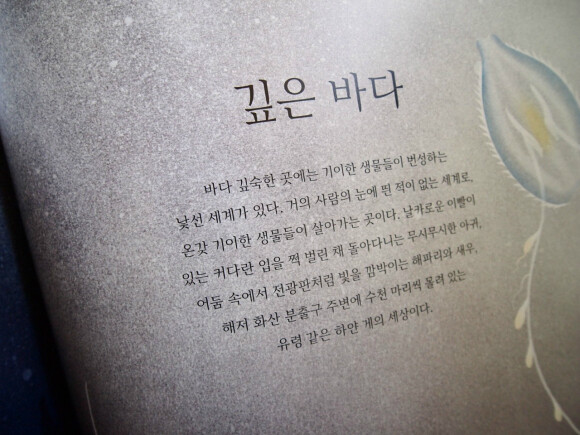 깊은 바다
바다 깊숙한 곳에는 기이한 생물들이 번성하는
낯선 세계가 있다. 거의 사람의 눈에 띈 적이 없는 세계로,
온갖 기이한 생물들이 살아가는 곳이다. 날카로운 이빨이
있는 커다란 입을 쩍 벌린 채 돌아다니는 무시무시한 아귀,
어둠 속에서 전광판처럼 빛을 깜박이는 해파리와 새우,
해저 화산 분출구 주변에 수천 마리씩 몰려 있는
유령 같은 하얀 게의 세상이다.